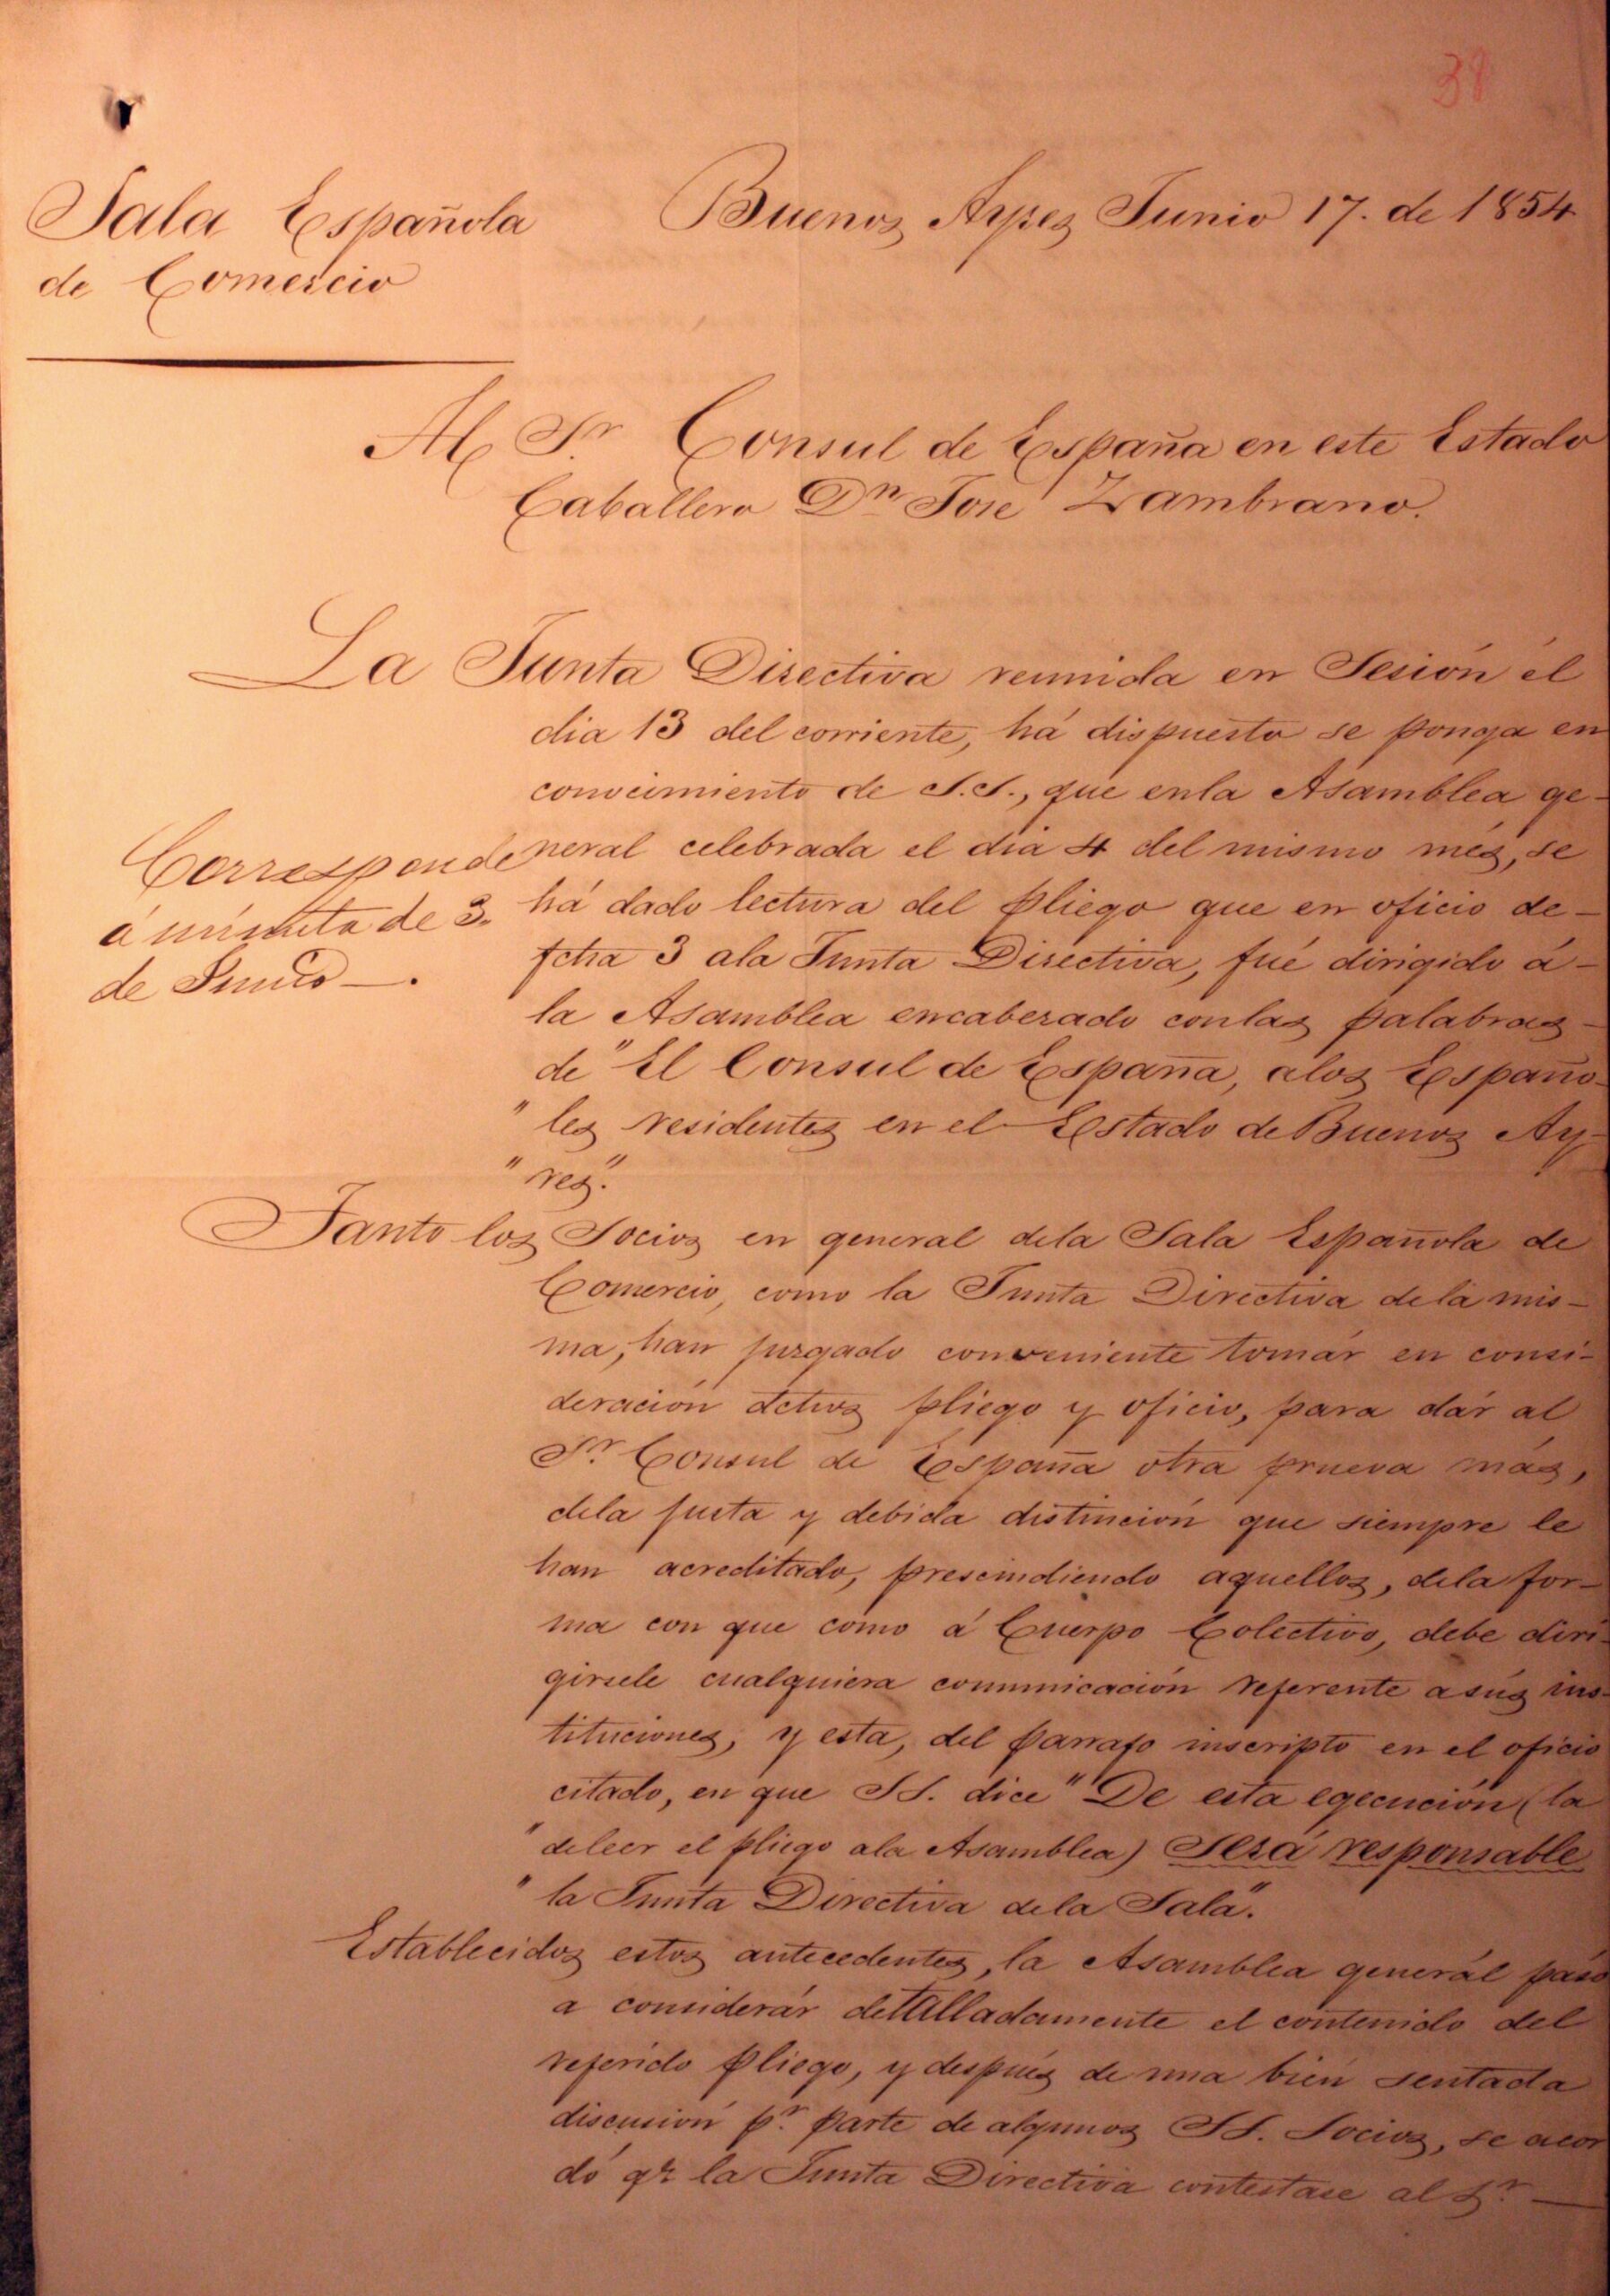 38
Sala Española
de Comercio
Buenos Ayres Junio 17. de 1854
Al Sr. Consul de España en este Estado
Caballero Dn Jose Zambrano.
La Junta Directiva reunida en Sesión él
dia 13 del corriente, há dispuesto se ponga en
conocimiento de S.S., que enla Asamblea ge-
neral celebrada el dia 4 del mismo més, se
há dado lectura del pliego que en oficio de-
fcha 3 ala Junta Directiva, fué dirigido á-
la Asamblea encabesado conlas palabras-
de "El Consul de España, alos Españo-
" les residentes en el Estado de Buenos Ay-
" res".
Corresponde
á minuta de 3.
de Junio—.
Tanto los Socios en general dela Sala Española de
Comercio, como la Junta Directiva dela mis-
ma, han jusgado conveniente tomár en consi-
deración dchos pliego y oficio, para dár al
Sr. Consul de España otra prueva más,
dela justa y debida distinción que siempre le
han acreditado, prescindiendo aquellos, dela for-
ma con que como á Cuerpo Colectivo, debe diri-
girsele cualquiera comunicación referente asús ins-
tituciones; y esta, del parrafo inscripto en el oficio
citado, en que SS. dice "De esta egecución (la
" deleer el pliego ala Asamblea) Será responsable
" la Junta Directiva dela Sala".
Establecidos estos antecedentes, la Asamblea generál pasó
a considerár detalladamente el contenido del
referido pliego, y después de una bién sentada
discusión pr. parte de algunos SS. Socios, se acor
dó qe la Junta Directiva contestase al Sr. —